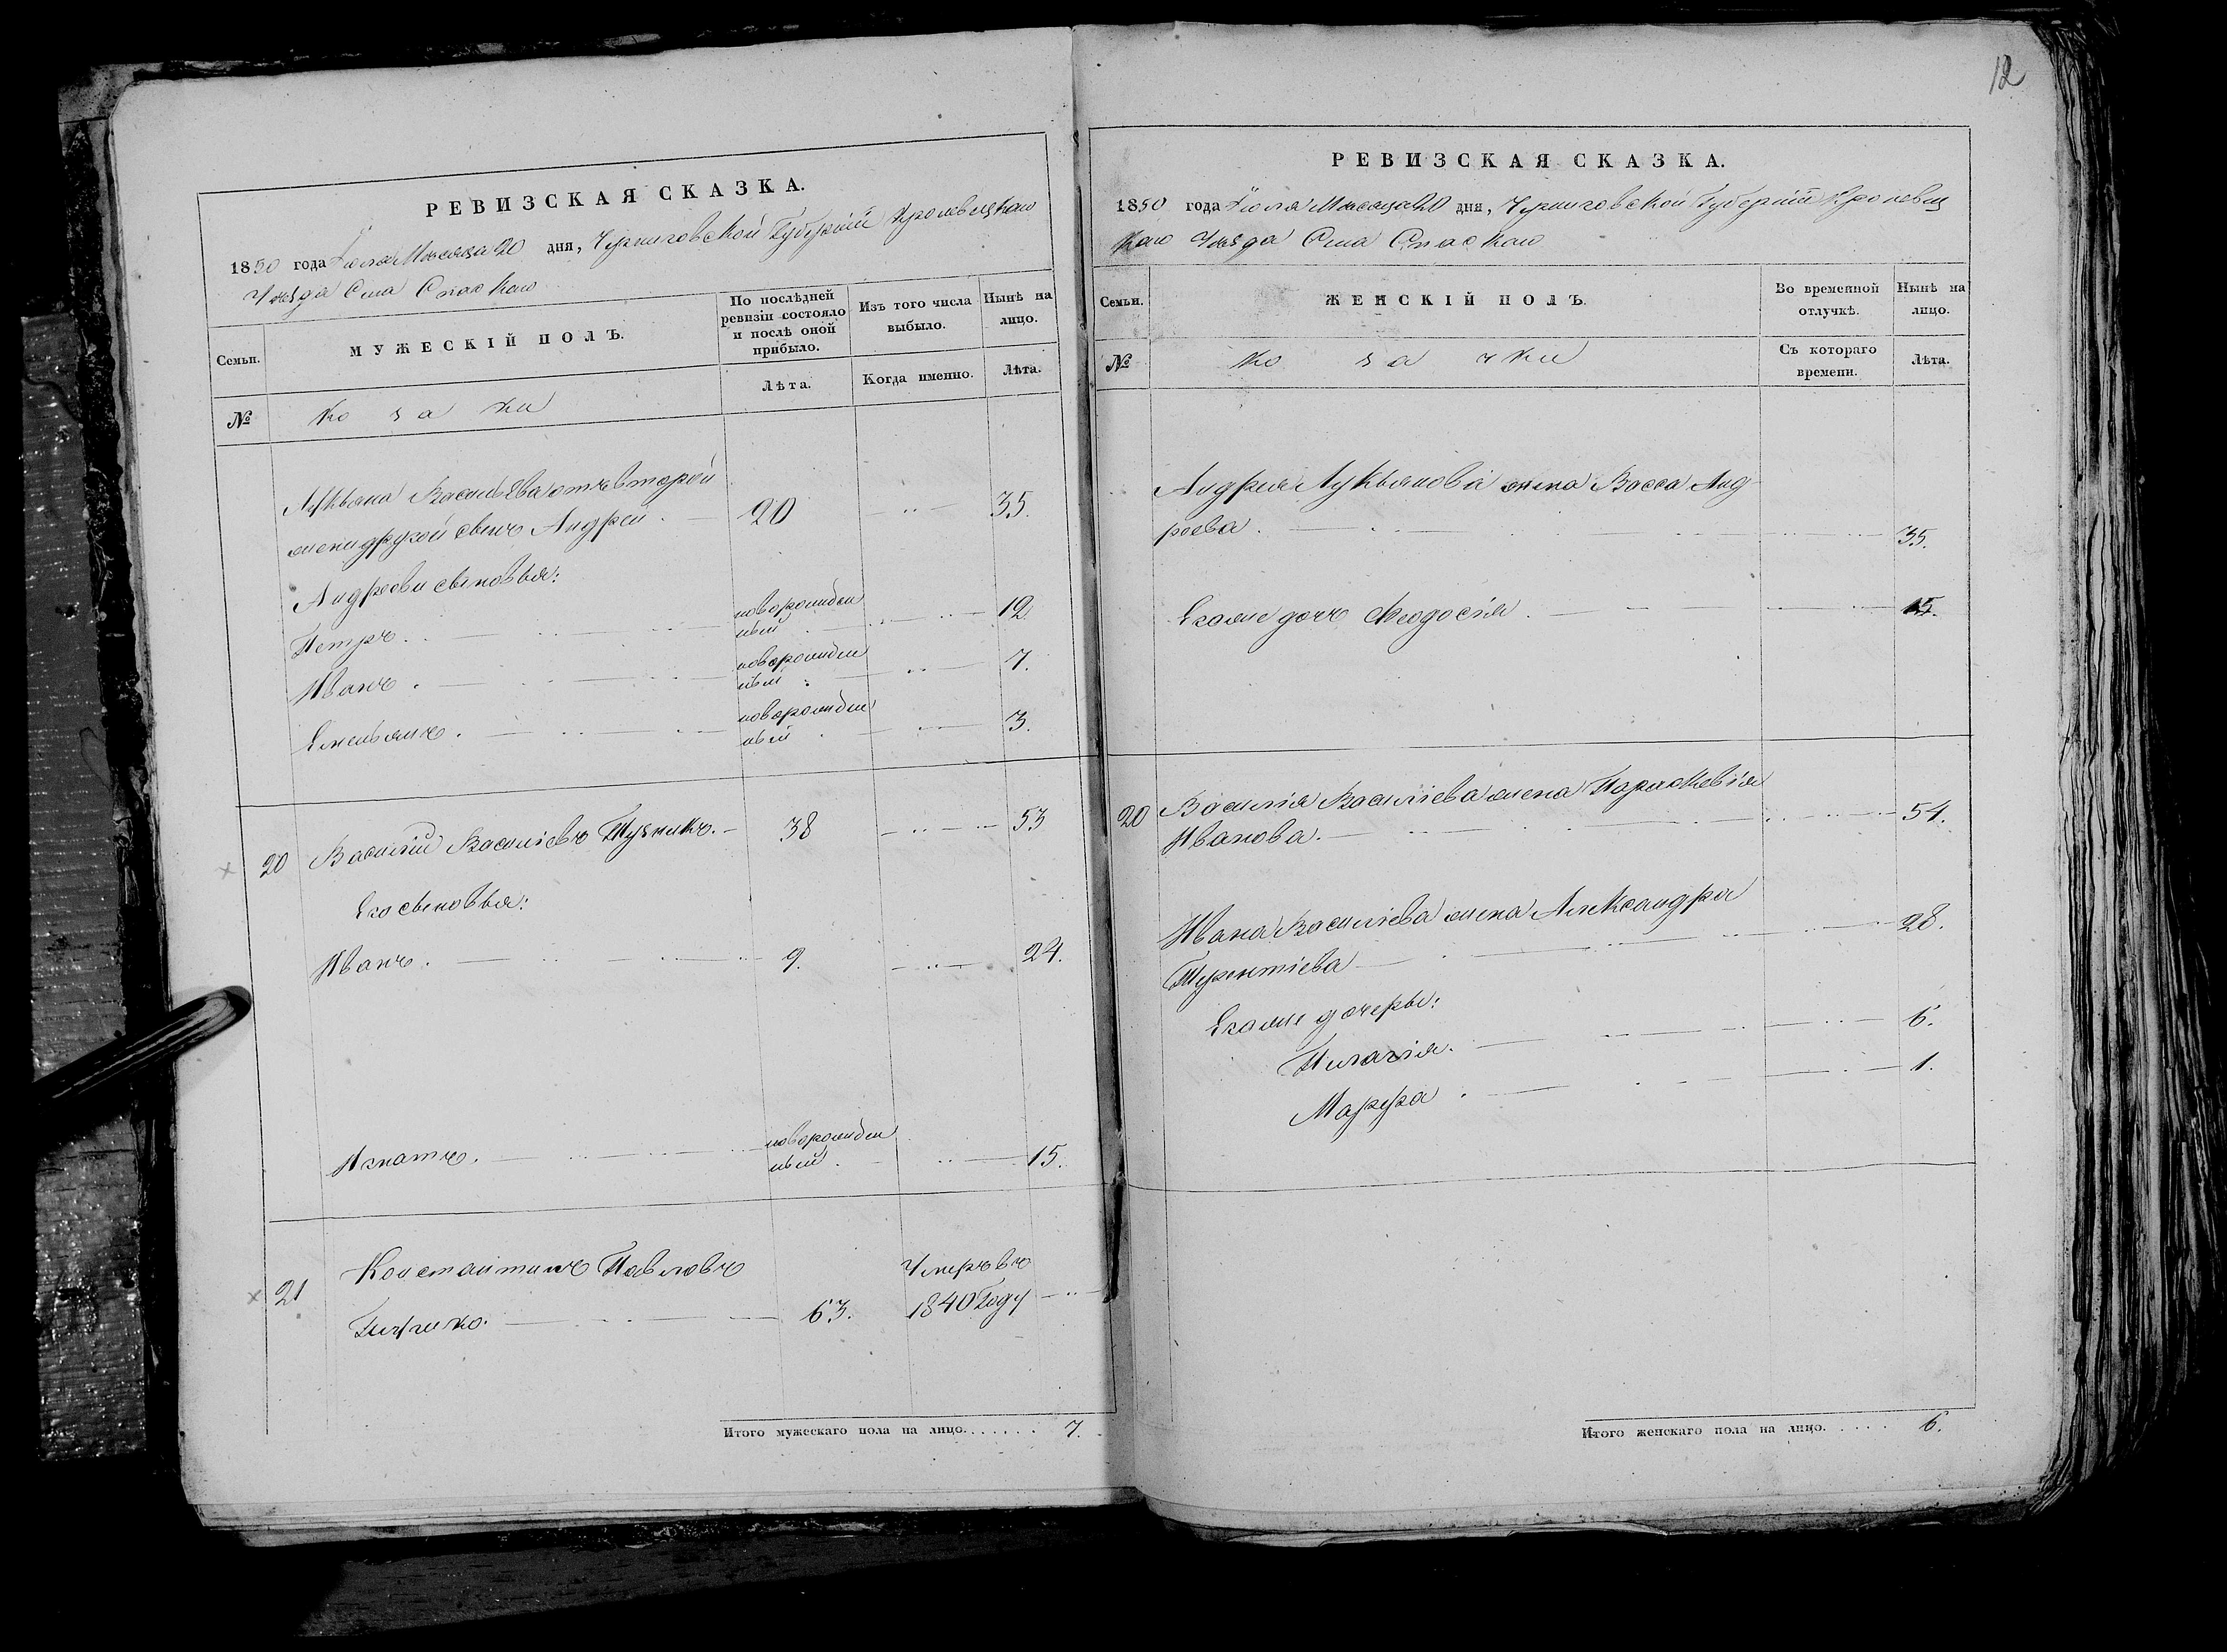 12
РЕВИЗСКАЯ СКАЗКА.
1850 года Іюля Мѣсяца 20 дня, Черниговской Губерніи Кролевецкаго
Уѣзда Села Спаскаго
Семьи.
МУЖЕСКІЙ ПОЛЪ.
По послѣдней ревизіи состояло и послѣ оной прибыло.
Изъ того числа выбыло.
Нынѣ на лицо.
№
козаки
Лѣта.
Когда именно.
Лѣта.
Лукьяна Васильева отъ второй
жены другой сынъ Андрей . 20 35.
Андреевы сыновья:
Петръ . новорожденный 12.
Иванъ . новорожденный 7.
Емельянъ . новорожденный 3.
20 Василій Василіевъ Пузикъ. 38 53
Его сыновья:
Иванъ . 9. 24.
Игнатъ . новорожденный . 15.
21 Константинъ Павловъ Умеръ въ
63. 1840 Году
Итого мужескаго пола на лицо. . . . . . 7.
РЕВИЗСКАЯ СКАЗКА.
1850 года Іюля Мѣсяца 20 дня, Черниговской Губерніи Кролевец
каго Уѣзда Села Спаскаго
Семьи.
ЖЕНСКІЙ ПОЛЪ
Во временной отлучкѣ.
Нынѣ на лицо.
№
козачки
Съ котораго времени.
Лѣта.
Андрея Лукьянова жена Васса Анд
реева . 35.
Егоже дочь Феодосія . 15.
20 Василія Василіева жена Параскевія
Иванова . 54.
Ивана Василіева жена Александра
Терентіева 28.
Егоже дочеры:
Пилагія. 6.
Марфа . 1.
Итого женскаго пола на лицо. . . . . 6.